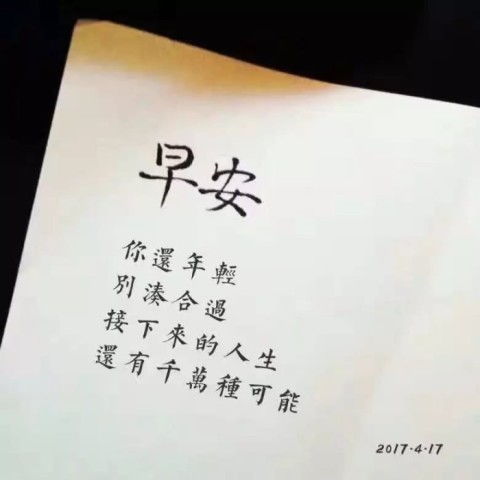 早安
你還年輕
別湊合過
接下來的人生
還有千萬種可能
2017·4·17